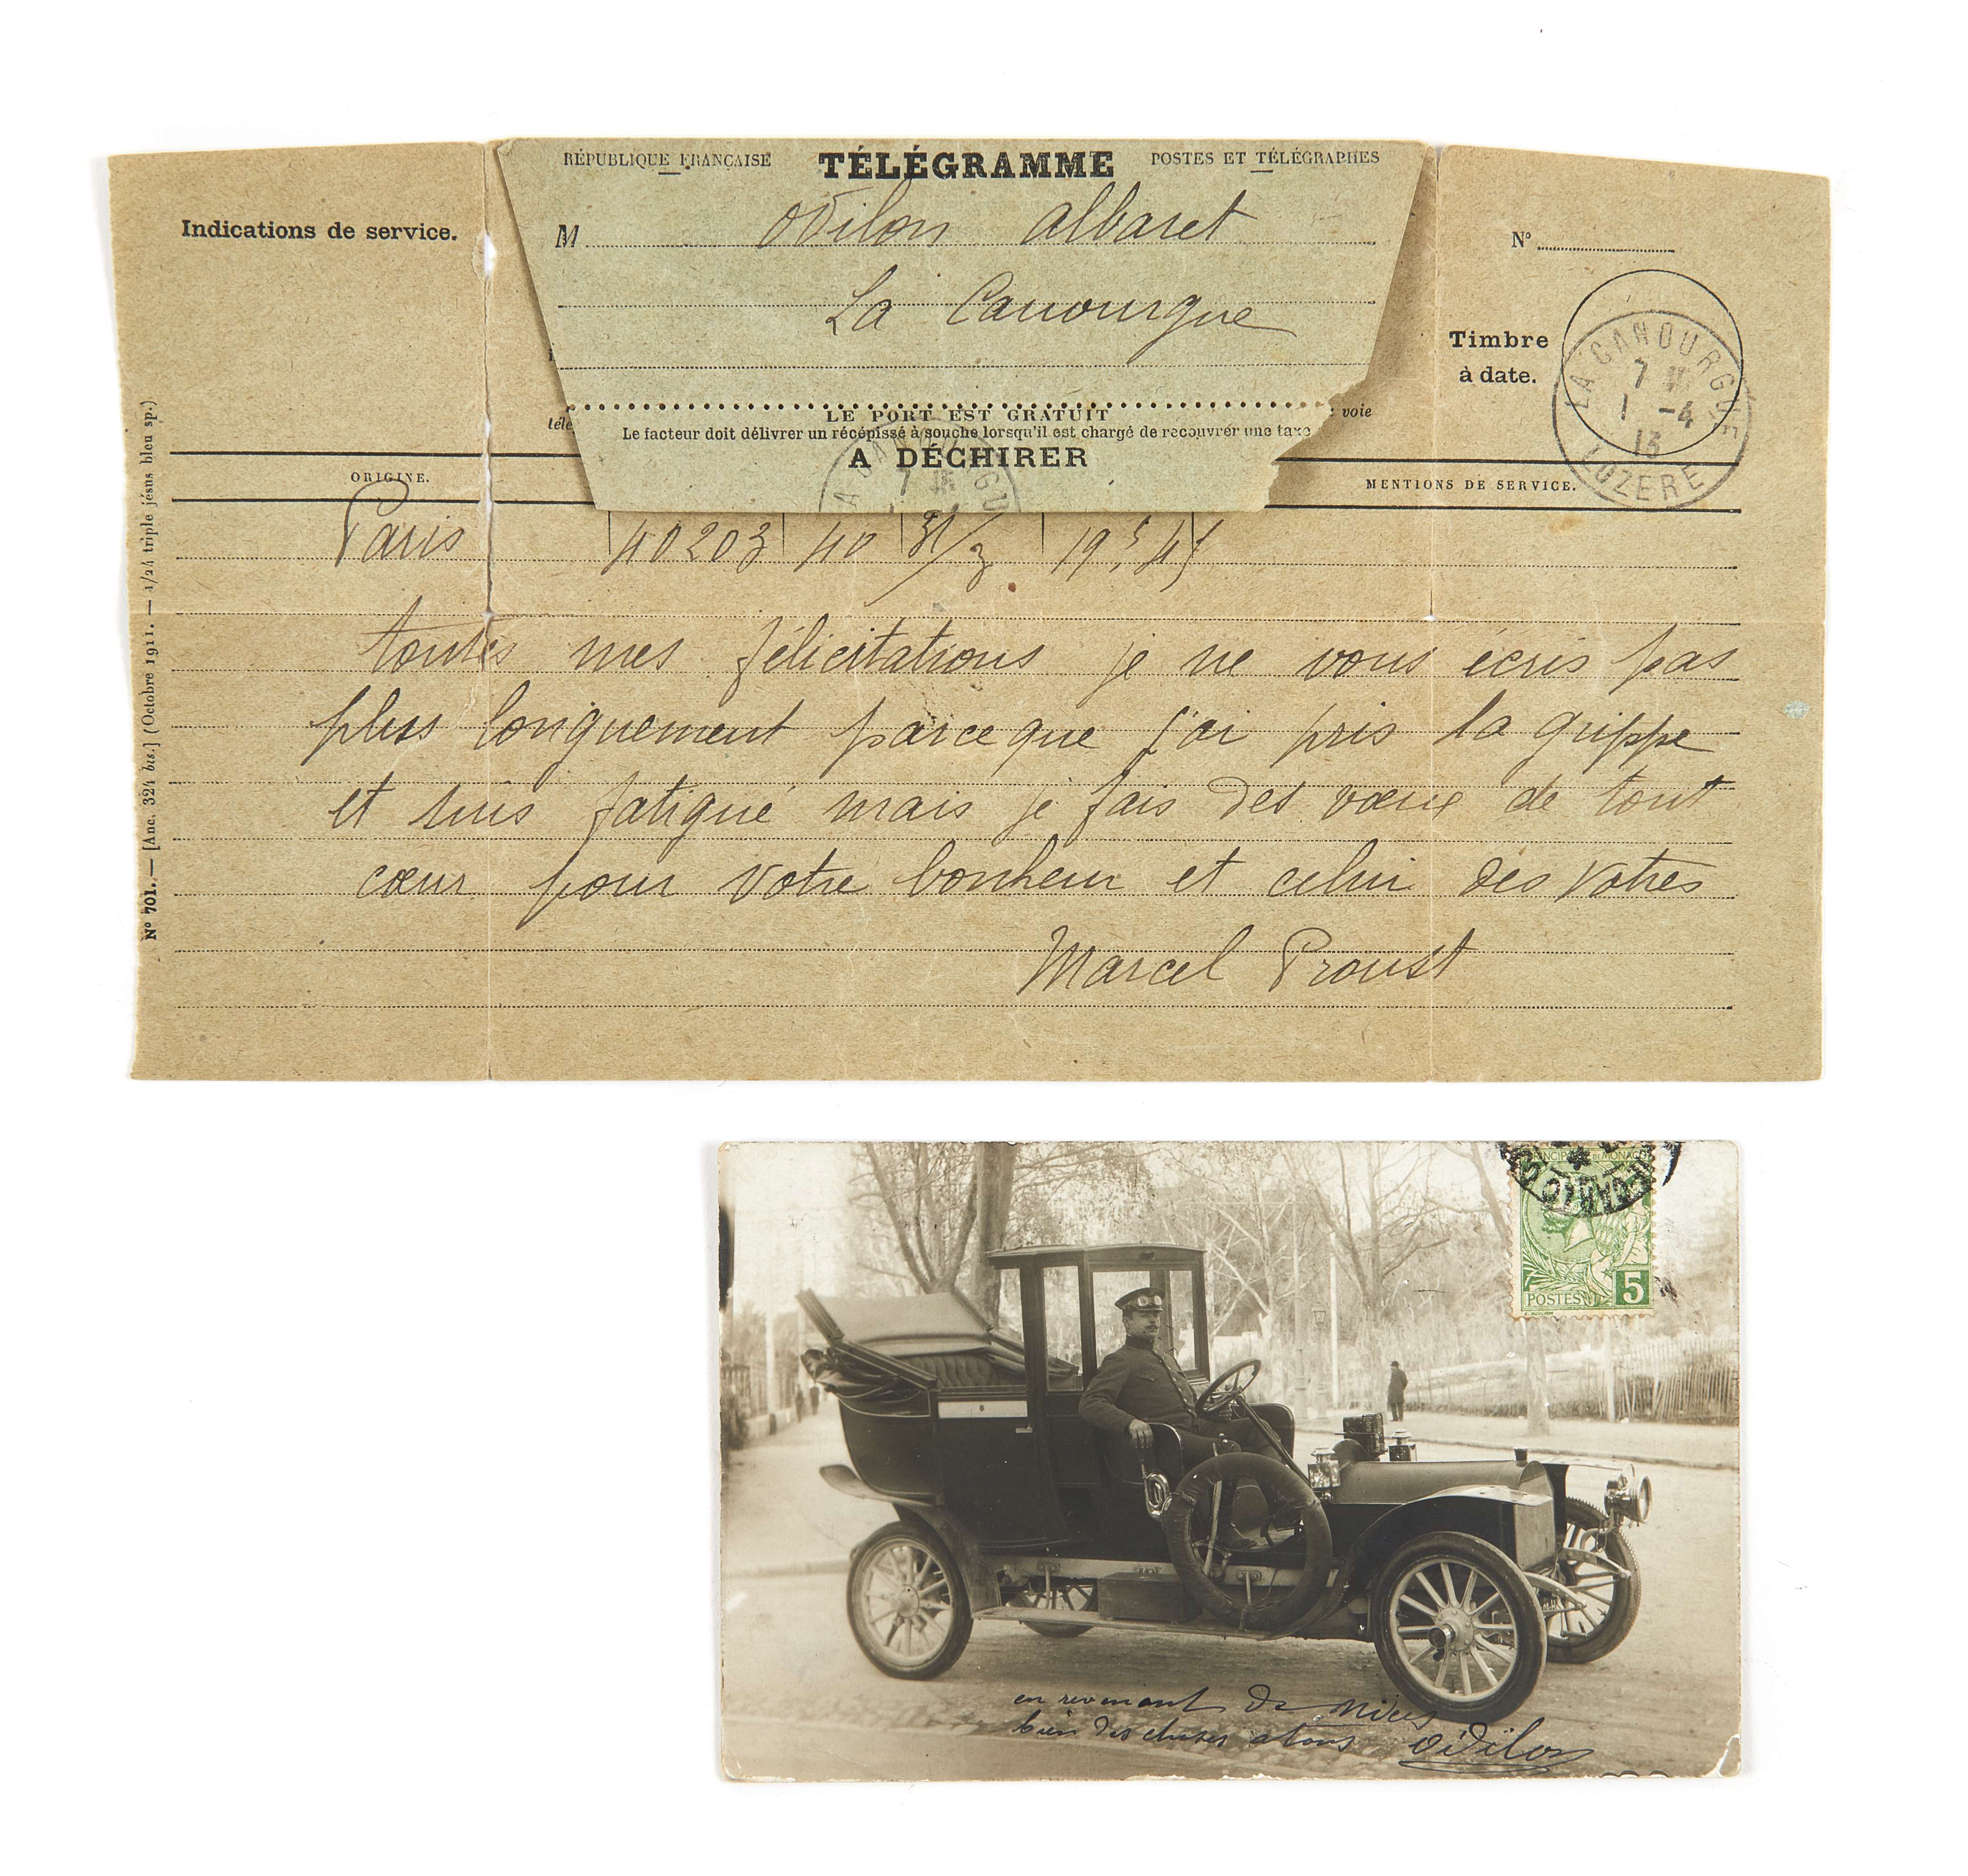 RÉPUBLIQUE FRANÇAISE TÉLÉGRAMME POSTES ET TÉLÉGRAPHES
Indications de service.
M odilon albaret
La Canourgue
N°
Timbre
à date.
LA CANOURGUE
7
1 -4
13
LOZERE
voie
LE PORT EST GRATUIT
Le facteur doit délivrer un récépissé à souche lorsqu'il est chargé de recouvrer une taxe
A DÉCHIRER
ORIGINE.
MENTIONS DE SERVICE.
Paris 40203 40 31/3 19,45
toutes mes félicitations je ne vous écris pas
plus longuement parceque j'ai pris la grippe
et suis fatigué mais je fais des vœux de tout
cœur pour votre bonheur et celui des votres
Marcel Proust
N° 701. — [Anc. 324 bis.] (Octobre 1911. — 1/24 triple jésus bleu sp.)
PRINCIPAUTÉ DE MONACO
POSTES 5
en revenant de Nice
bien des choses a tous Odilon